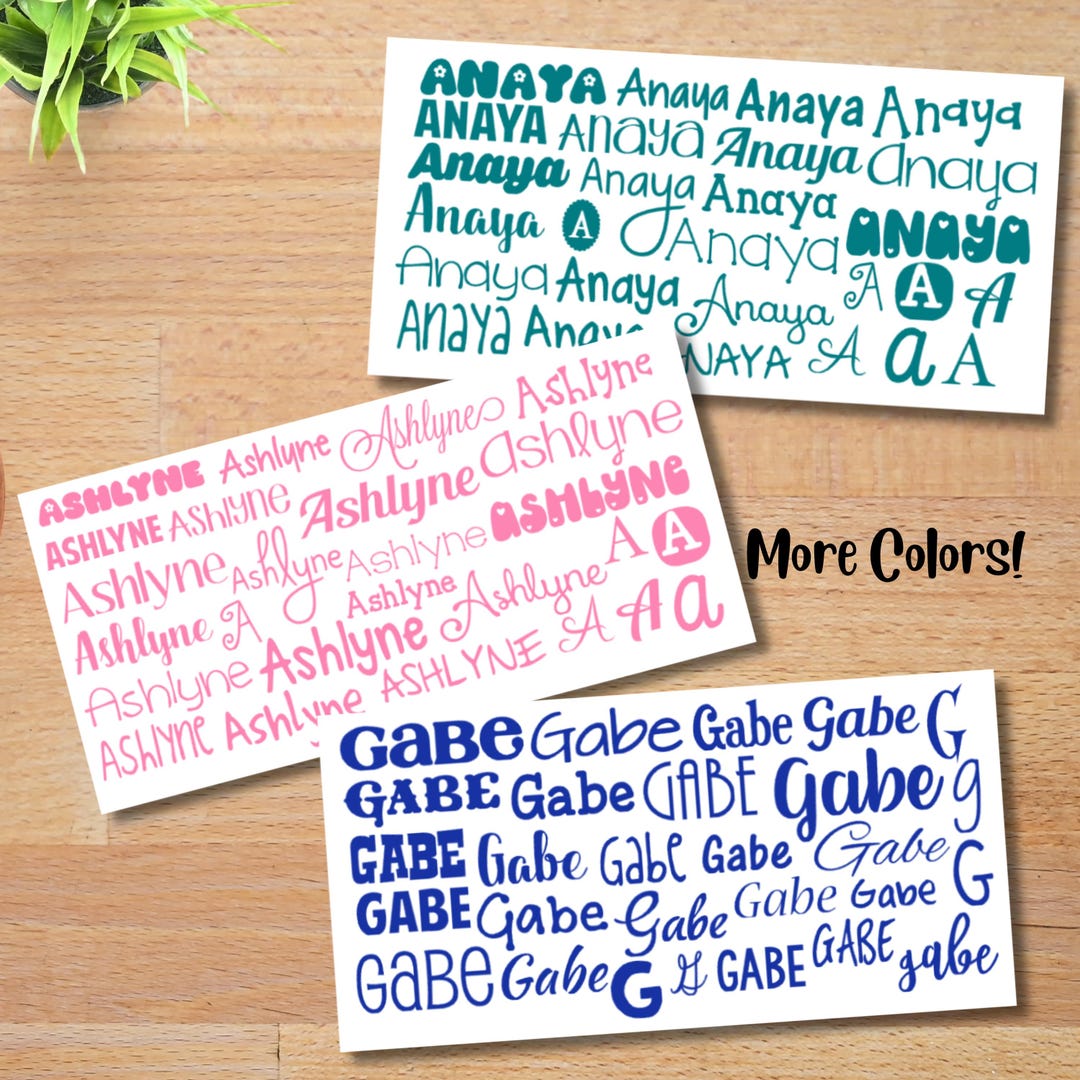 ANAYA Anaya Anaya Anaya
ANAYA Anaya Anaya anaya
Anaya Anaya Anaya ANAYA
Anaya A Anaya
Anaya Anaya Anaya A A A
ANAYA Anaya A a A
ASHLYNE Ashlyne Ashlyne Ashlyne
ASHLYNE Ashlyne Ashlyne ashlyne
Ashlyne Ashlyne Ashlyne ASHLYNE
Ashlyne A Ashlyne Ashlyne A A
Ashlyne Ashlyne A A a
ASHLYNE Ashlyne ASHLYNE
More Colors!
GaBe Gabe Gabe Gabe G
GABE Gabe GABE Gabe g
GABE Gabe Gabe Gabe Gabe
GABE Gabe Gabe Gabe Gabe G
GaBe Gabe G G GABE GABE gabe